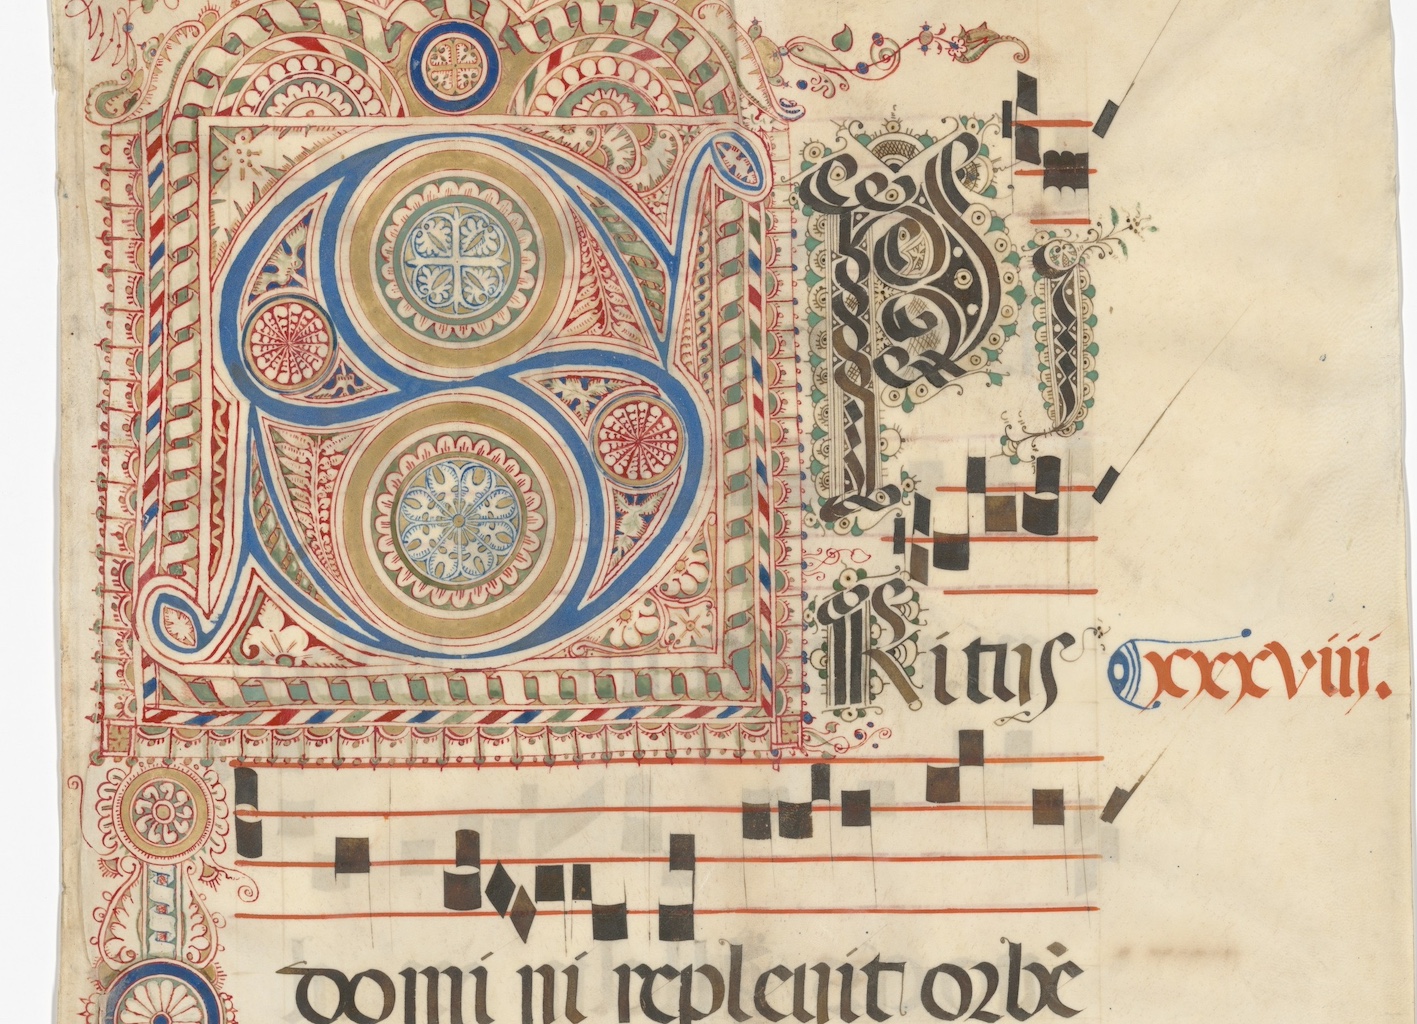 SPI
Ritus xxxviiii.
domi ni replevit orbē